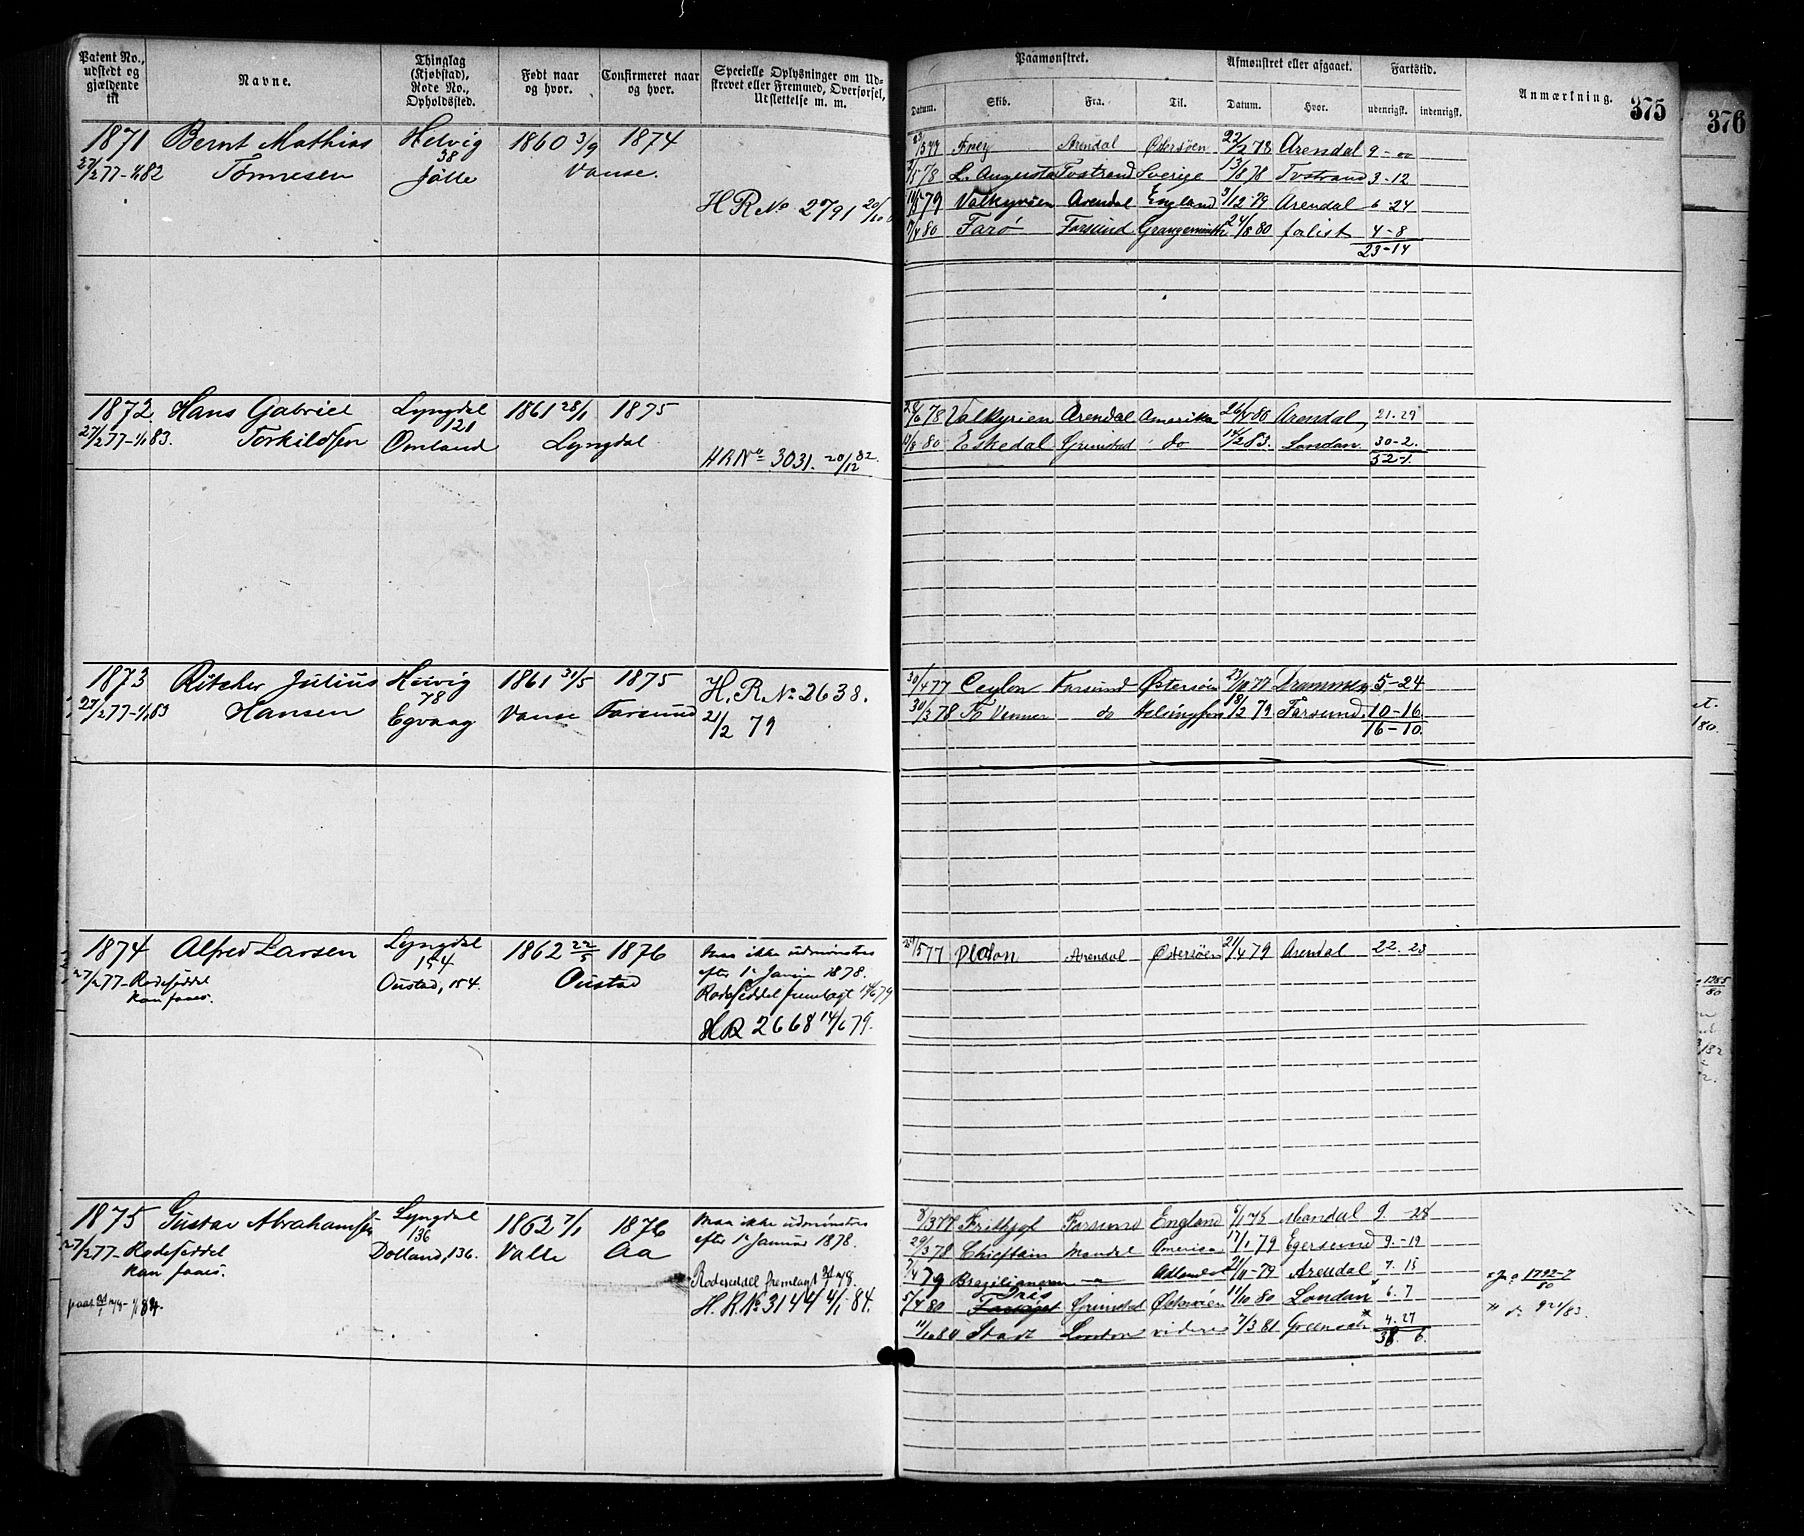 Patent No., udstedt og gjældende til
Navne.
Thinglag (Kjøbstad), Rode No., Opholdssted.
Født naar og hvor.
Confirmeret naar og hvor.
Specielle Oplysninger om Udskrevet eller Fremmed, Overførsel, Udslettelse m. m.
Paamønstret.
Datum. Skib. Fra. Til.
Afmønstret eller afgaaet.
Datum. Hvor.
Fartstid.
udenrigsk. indenrigsk.
Anmærkning.
375
376
1871 Bernt Mathias Helvig 1860 3/9 1874
27/2 77-1/1 82 Tønnesen 38 Jølle Vanse.
H R No 2791 20/10
Frey Arendal Østersøen 22/1 78 Arendal 9-00
78 L. Augusta Tvstrand Sverige 13/8 78 Tvstrand 3-12
79 Valkyrien Arendal England 3/12-79 Arendal 6-24
80 Farø Farsund Grangemouth 24/8 80 forlist 4-8
23-14
1872 Hans Gabriel Lyngdal 1861 28/1 1875
27/2 77-1/1 83. Torkildsen 121 Omland Lyngdal
HR No 3031. 20/12 82.
78 Valkyrien Arendal Amerika 80 Arendal 21-29
80 Eskedal Grimstad do 83. London 30-2.
52-1.
1873 Ritcher Julius Helvig 1861 31/5 1875 H. R. No 2638.
27/2 77-1/1 83 Hansen 78 Egvaag Vanse Farsund 21/2 79
30/4 77 Ceylon Farsund Østersøen 23/11 77 Drammen 5-24
30/3 78 Venner do Helsingfors 79 Farsund 10-16
16-10
1874 Alfred Larsen Lyngdal 1862 22/5 1876 Maa ikke udmønstres
27/2 77-Rodeseddel 154 Oustad efter 1ste Januar 1878.
kan faaes. Oustad, 154. Rodeseddel fremlagt 14/6 79
H R 2668 14/6 79.
77 Platon Arendal Østersøen 21/4 79 Arendal 22. 23
1875 Gustav Abrahamsen Lyngdal 1862 7/1 1876 Maa ikke udmønstres
27/2 77-Rodeseddel 136 Valle Aa efter 1ste Januar 1878.
kan faaes. Dolland, 136.
Rodeseddel fremlagt 78.
H. R. No 3144 4/1 84.
8/3 77 Fridthjof Farsund England 6/1 78 Mandal 9. -28
29/3 78 Chieftain Mandal Amerika 17/1 79 Egersund 9.-19
7/4 79 Brazilianeren 21/11-79 Arendal 7. 15
5/4 80 Iris Grimstad Østersøen 11/10 80 London 6. 7
11/10 80 Stadt London videre 7/3 81 Greenock 4. 27
38. 6.
1792-7/80